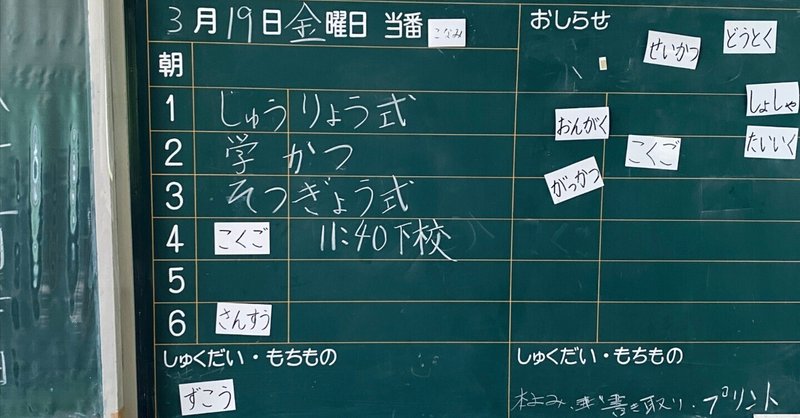 3月19日金曜日 当番 こなみ
朝
1 じゅうりょう式
2 学かつ
3 そつぎょう式
4 こくご 11:40下校
5
6 さんすう
しゅくだい・もちもの
ずこう
おしらせ
せいかつ
どうとく
しょしゃ
おんがく
たいいく
こくご
がっかつ
しゅくだい・もちもの
書き取り、プリント